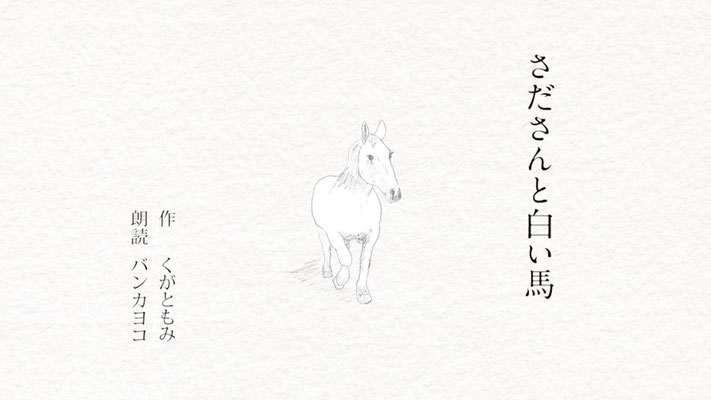 さださんと白い馬
作　くがともみ
朗読　バンカヨコ